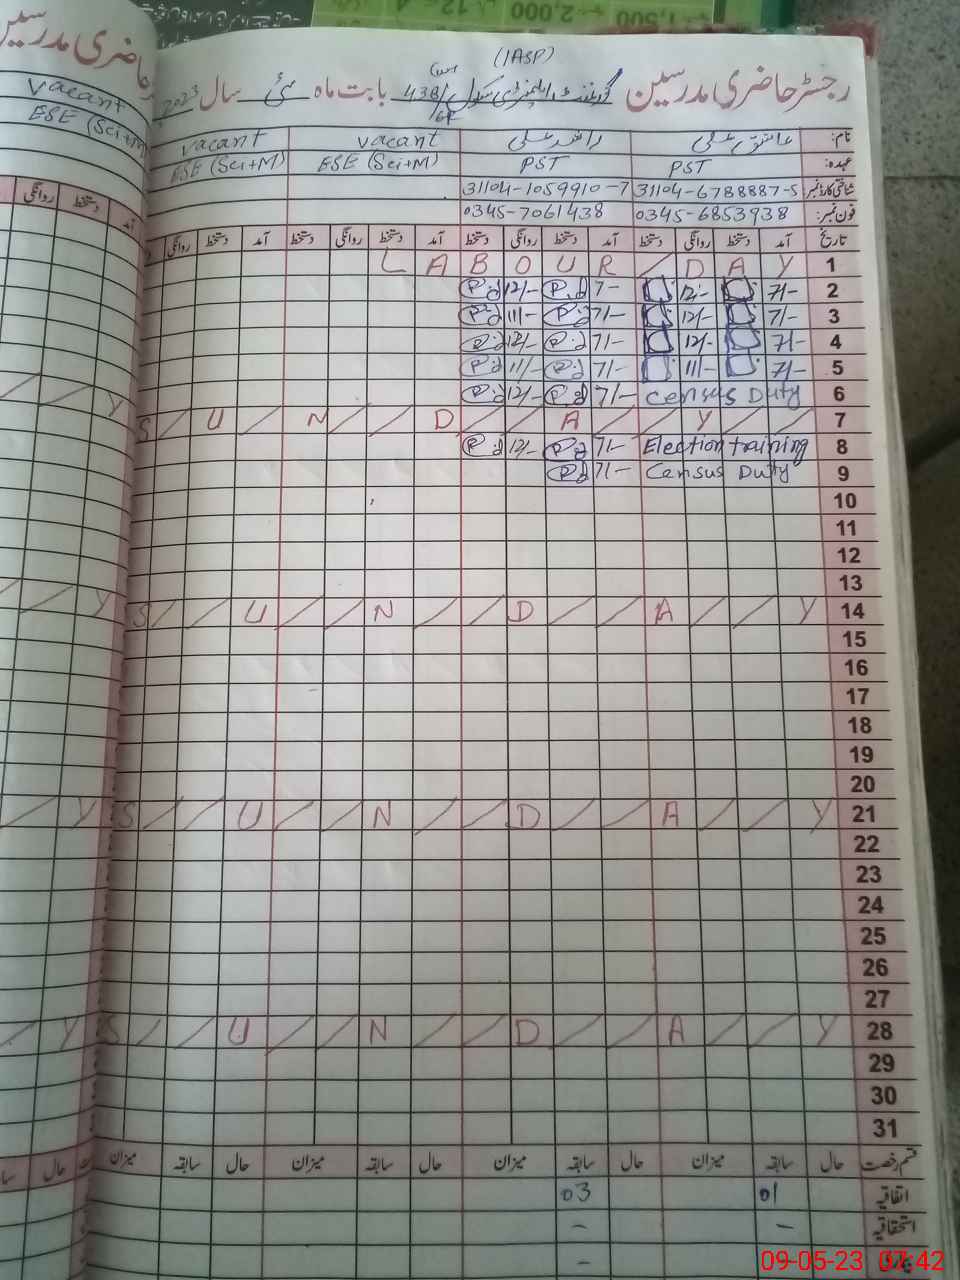 (IASP)
رجسٹر حاضری مدرسین گورنمنٹ ایلیمنٹری سکول 438/6R بابت ماہ مئی سال 2023
نام: عاشق علی راشد علی vacant vacant
عہدہ: PST PST ESE (Sci+M) ESE (Sci+M)
شناختی کارڈ نمبر: 31104-6788887-5 31104-1059910-7
فون نمبر: 0345-6853938 0345-7061438
تاریخ آمد دستخط روانگی دستخط آمد دستخط روانگی دستخط آمد دستخط روانگی دستخط آمد دستخط روانگی
LABOUR / DAY 1
12/- 7/- 12/- 7/- 2
11/- 7/- 12/- 7/- 3
12/- 7/- 12/- 7/- 4
11/- 7/- 11/- 7/- 5
12/- 7/- Census Duty 6
S / U / N / / D / / A / / Y / / 7
12/- 7/- Election training 8
7/- Census Duty 9
10
11
12
13
Y S / / U / / N / / D / / A / / Y 14
15
16
17
18
19
20
/ Y S / / U / / N / / D / / A / / Y 21
22
23
24
25
26
27
/ Y S / / U / / N / / D / / A / / Y 28
29
30
31
قسم رخصت حال سابقہ میزان حال سابقہ میزان حال سابقہ میزان حال سابقہ میزان
اتفاقیہ 01 03
استحقاقیہ - -
-
09-05-23 07:42
حاضری مدرسین
vacant
ESE (Sci+M)
آمد دستخط روانگی
حال
1,500
2,000